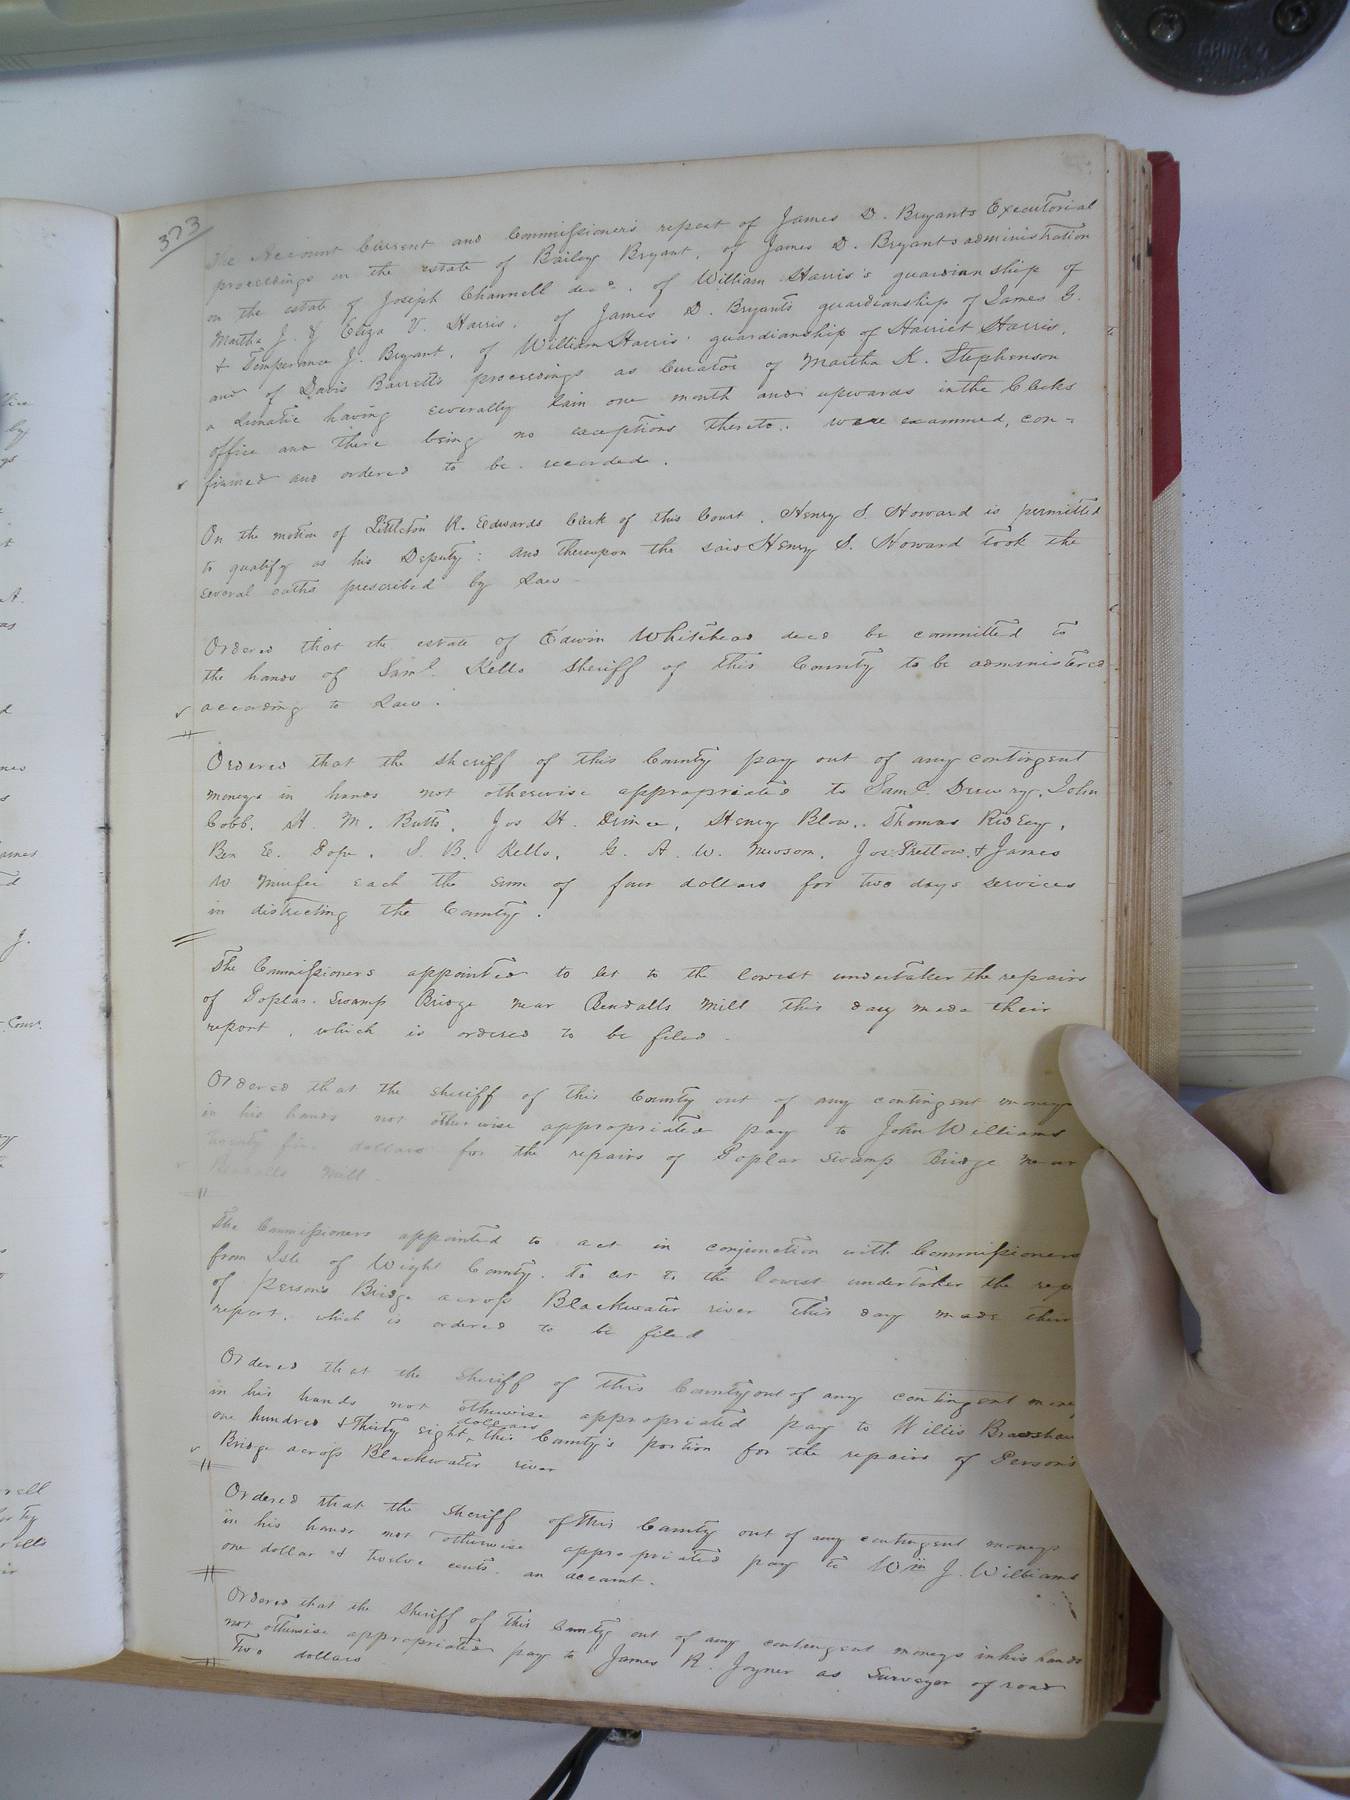 373
The Account Current and Commissioner's report of James D. Bryants Executorial
proceedings on the estate of Bailey Bryant, of James D. Bryants administration
on the estate of Joseph Channell decd. of William Harris's guardianship of
Martha J. & Eliza V. Harris, of James D. Bryants guardianship of James G.
& Temperance J. Bryant, of William Harris' guardianship of Harriet Harris,
and of Davis Barretts proceedings as Curator of Martha K. Stephenson
a Lunatic having severally lain one month and upwards in the Clerks
office and there being no exceptions thereto, were examined, con=
firmed and ordered to be recorded.
On the motion of Littleton R. Edwards Clerk of this Court, Henry S. Howard is permitted
to qualify as his Deputy: and thereupon the said Henry S. Howard took the
several oaths prescribed by Law
Ordered that the estate of Edwin Whitehead decd be committed to
the hands of Saml. Kello Sheriff of this County to be administered
according to Law.
Ordered that the sheriff of this County pay out of any contingent
moneys in hands not otherwise appropriated to Saml. Drewry, John
Cobb, H. M. Butts, Jos H. Prince, Henry Blow, Thomas Ridley,
Ben E. Pope, S. B. Kello, G. A. W. Newsom, Jos. Pretlow, & James
W Murfee each the sum of four dollars for two days services
in districting the County.
The Commissioners appointed to let to the lowest undertaker the repairs
of Poplar Swamp Bridge near Bendalls Mill this day made their
report, which is ordered to be filed.
Ordered that the sheriff of this County out of any contingent moneys
in his hands not otherwise appropriated pay to John Williams
twenty five dollars for the repairs of Poplar Swamp Bridge near
Bendalls Mill.
The Commissioners appointed to act in conjunction with Commissioners
from Isle of Wight County, to let to the lowest undertaker the rep
of Persons Bridge across Blackwater river this day made their
report, which is ordered to be filed
Ordered that the Sheriff of this County out of any contingent money
in his hands not otherwise appropriated pay to Willis Bradshaw
one hundred & thirty eight dollars this County's portion for the repairs of Person's
Bridge across Blackwater river
Ordered that the Sheriff of this County out of any contingent moneys
in his hands not otherwise appropriated pay to Wm J. Williams
one dollar & twelve cents. an account.
Ordered that the Sheriff of this County out of any contingent moneys in his hands
not otherwise appropriated pay to James R. Joyner as Surveyor of road
Two dollars